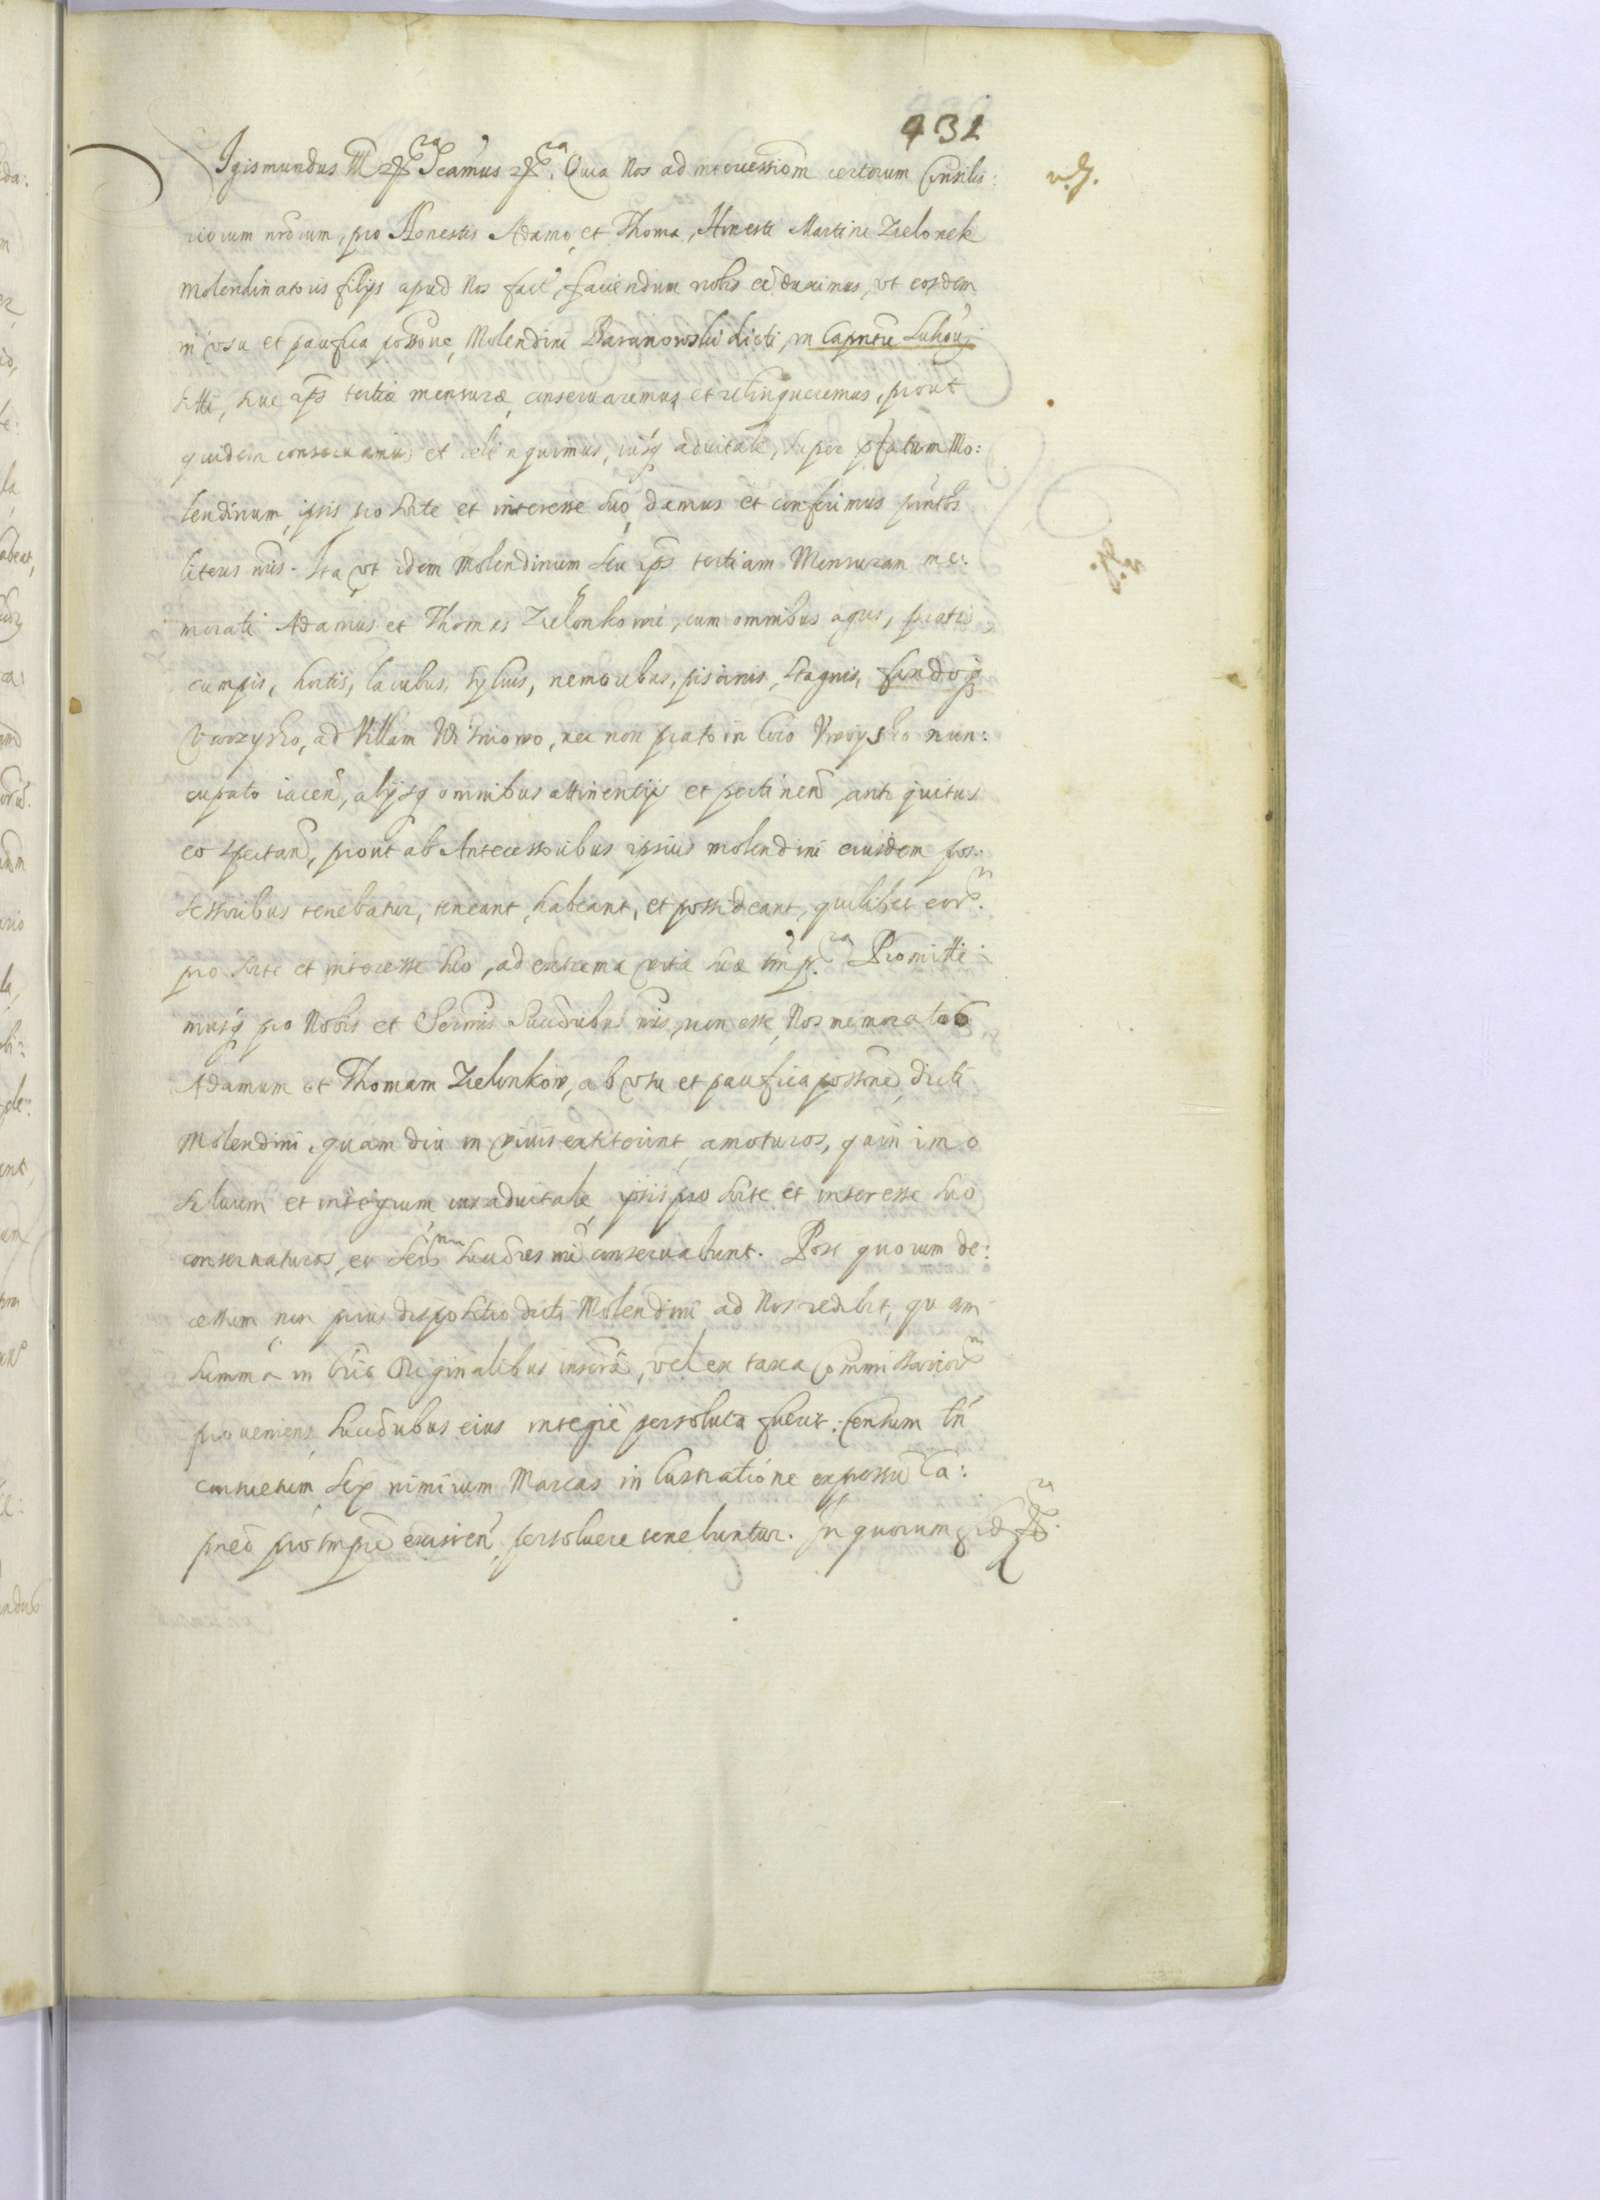 431
Sigismundus III etc. Sca'mus etc. Quia Nos ad intercessiom certorum Consilia:
riorum nrorum, pro Honestis Adamo et Thoma, Honesti Martini Zielonek
Molendinatoris filijs apud Nos fact', faciendum nobis ee duximus, vt eosdem
in vsu et pacifica possone, Molendini Baranowski dicti, in Captu
siti, siue ips tertiæ mensuræ, conseruaremus et relinqueremus, prout
quidem conseruamus et relinquimus, iusq aduitale, super pfatum Mo:
lendinum, ipsis pro sorte et interesse suo, damus et conferimus pntbs
literis nris. Ita vt idem Molendinum seu ips tertiam Mensuram me:
morati Adamus et Thomas Zielonkowie, cum omnibus agris, pratis
campis, hortis, lacubus, syluis, nemoribus, piscinis, stagnis, fundoq
ad Villam, nec non prato in loco nun:
cupato iacen, alijsq omnibus attinentijs et pertinen antiquitus
eo spectan, prout ab Antecessoribus ipsius molendini eiusdem pos:
sessoribus tenebatur, teneant, habeant, et possideant, quilibet eor
pro sorte et interesse suo, ad extrema vitæ suæ tmpr. Promitti:
musq pro Nobis et Sermis Succribus nris, non esse Nos memoratos
Adamum et Thomam Zielonkow, ab vsu et pacifica possone, dicti
Molendini, quam diu in viuis extiterint, amoturos, quin imo
saluum et integrum ius aduitale, ipsis pro sorte et interesse suo
conseruaturos, et Sermi Succres nri conseruabunt. Post quorum de:
cessum non prius dispositio dicti Molendini ad Nos redibit, quam
summa in Originalibus inserta, vel ex taxa Commissarior
proueniens Succribus eius integrè persoluta fuerit. Censum tn
consuetum, sex nimirum Marcas in lustratione expressu Ca:
pneo pro tmpre existen persoluere tenebuntur. In quorum fid etc.